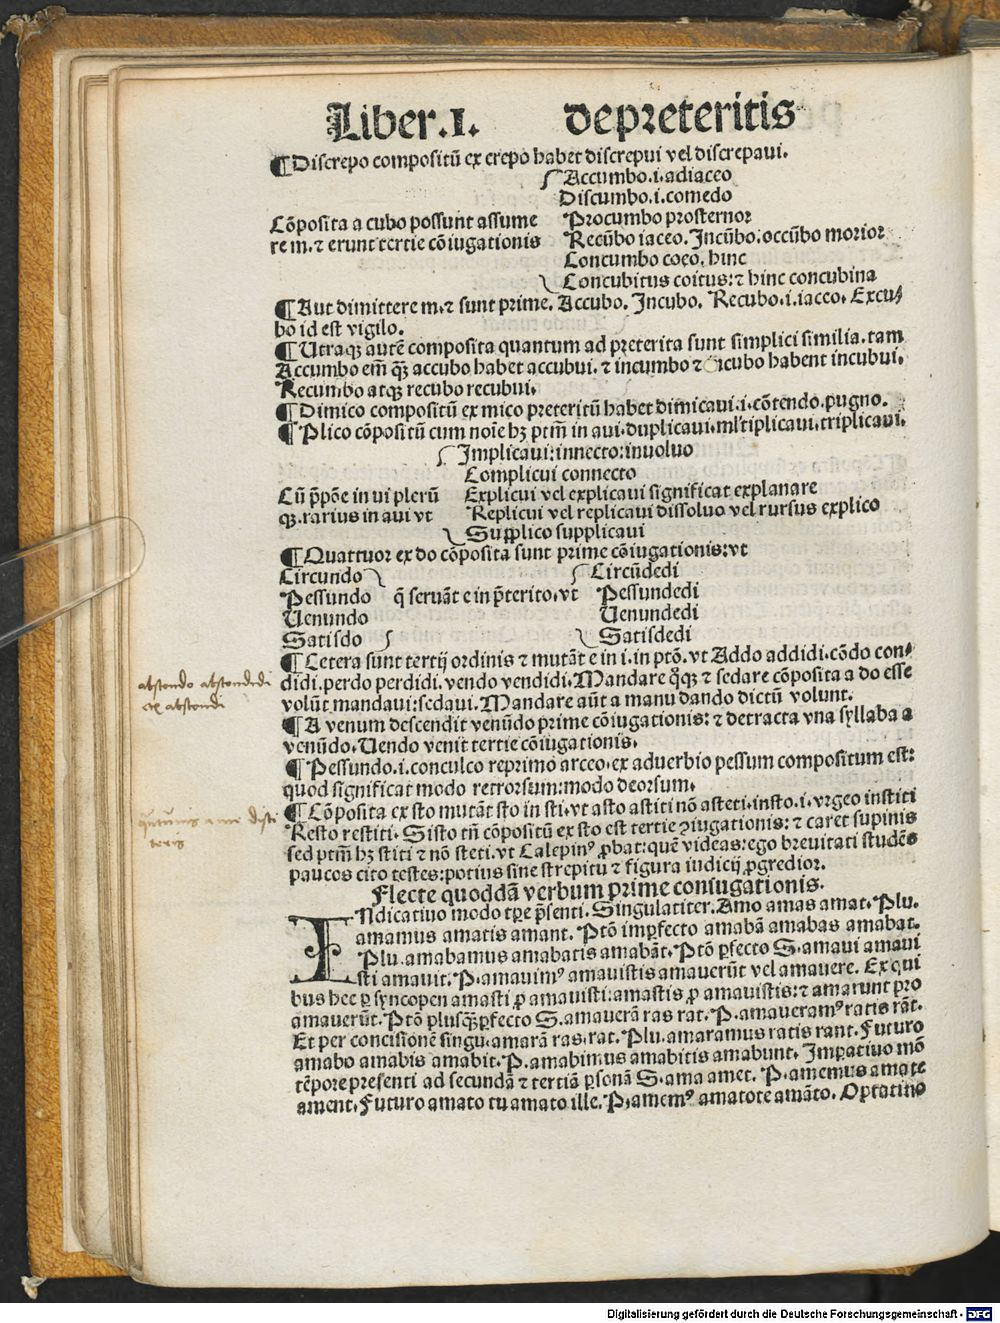 Liber.I. de preteritis
¶Discrepo compositū ex crepo habet discrepui vel discrepaui.
Accumbo.i.adiaceo
Discumbo.i.comedo
Cōposita a cubo possunt assume Procumbo prosternor
re m.⁊ erunt tertie cōiugationis Recūbo iaceo. Incūbo:occūbo morior
Concumbo coeo, hinc
Concubitus coitus:⁊ hinc concubina
¶Aut dimittere m.⁊ sunt prime. Accubo. Incubo. Recubo.i.iaceo. Excu-
bo id est vigilo.
¶Utraqꝫ autē composita quantum ad preterita sunt simplici similia.tam
Accumbo em̄ qꝫ accubo habet accubui. ⁊ incumbo ⁊ incubo habent incubui.
Recumbo atqꝫ recubo recubui.
¶Dimico compositū ex mico preteritū habet dimicaui.i.cōtendo.pugno.
¶Plico cōpositū cum noīe hꝫ ptm̄ in aui.duplicaui.ml'tiplicaui.triplicaui.
Implicaui:innecto:inuoluo
Complicui connecto
Cū p̄pōe in ui plerū Explicui vel explicaui significat explanare
qꝫ.rarius in aui vt Replicui vel replicaui dissoluo vel rursus explico
Supplico supplicaui
¶Quattuor ex do cōposita sunt prime cōiugationis:vt
Circundo Circūdedi
Pessundo q̄ seruāt e in p̄terito.vt Pessundedi
Uenundo Uenundedi
Satisdo Satisdedi
¶Cetera sunt tertij ordinis ⁊ mutāt e in i.in ptō.vt Addo addidi.cōdo con-
didi.perdo perdidi.vendo vendidi.Mandare qꝫ ⁊ sedare cōposita a do esse
volūt mandaui:sedaui.Mandare aūt a manu dando dictū volunt.
abstondo abstondedi
et abstondi
¶A venum descendit venūdo prime cōiugationis: ⁊ detracta vna syllaba a
venūdo.Uendo venit tertie cōiugationis.
¶Pessundo.i.conculco reprimo arceo.ex aduerbio pessum compositum est:
quod significat modo retrorsum:modo deorsum.
¶Cōposita ex sto mutāt sto in sti.vt asto astiti nō asteti.insto.i.vrgeo institi
Resto restiti. Sisto tn̄ cōpositū ex sto est tertie ꝯiugationis: ⁊ caret supinis
sed ptm̄ hꝫ stiti ⁊ nō steti.vt Calepinꝰ ꝓbat:quē videas:ego breuitati studēs
paucos cito testes:potius sine strepitu ⁊ figura iudicij ꝓgredior.
Flecte quoddā verbum prime coniugationis.
INdicatiuo modo tꝑe p̄senti. Singulariter.Amo amas amat. Plu.
amamus amatis amant. Ptō imꝑfecto amabā amabas amabat.
Plu.amabamus amabatis amabāt. Ptō ꝑfecto S.amaui amaui
sti amauit. P.amauimꝰ amauistis amauerūt vel amauere. Ex qui
bus hec ꝑ syncopen amasti ꝓ amauisti:amastis ꝓ amauistis:⁊ amarunt pro
amauerūt. Ptō plusqꝫꝑfecto S.amauerā ras rat. P.amaueramꝰ ratis rāt.
Et per concisionē singu.amarā ras.rat. Plu.amaramus ratis rant. Futuro
amabo amabis amabit.P.amabimus amabitis amabunt. Imꝑatiuo mō
tēpore presenti ad secundā ⁊ tertiā ꝑsonā S.ama amet. P.amemus amate
ament.Futuro amato tu amato ille.P.amemꝰ amatote amāto. Optatiuo
Digitalisierung gefördert durch die Deutsche Forschungsgemeinschaft - DFG